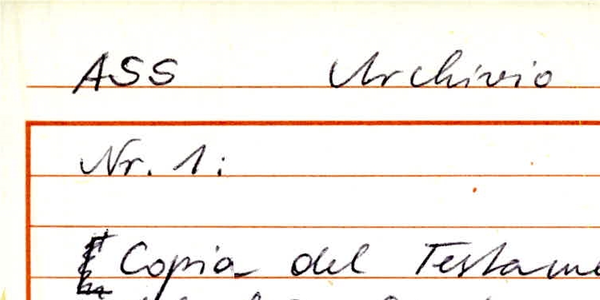 ASS Archivio
Nr. 1:
Copia del Testame